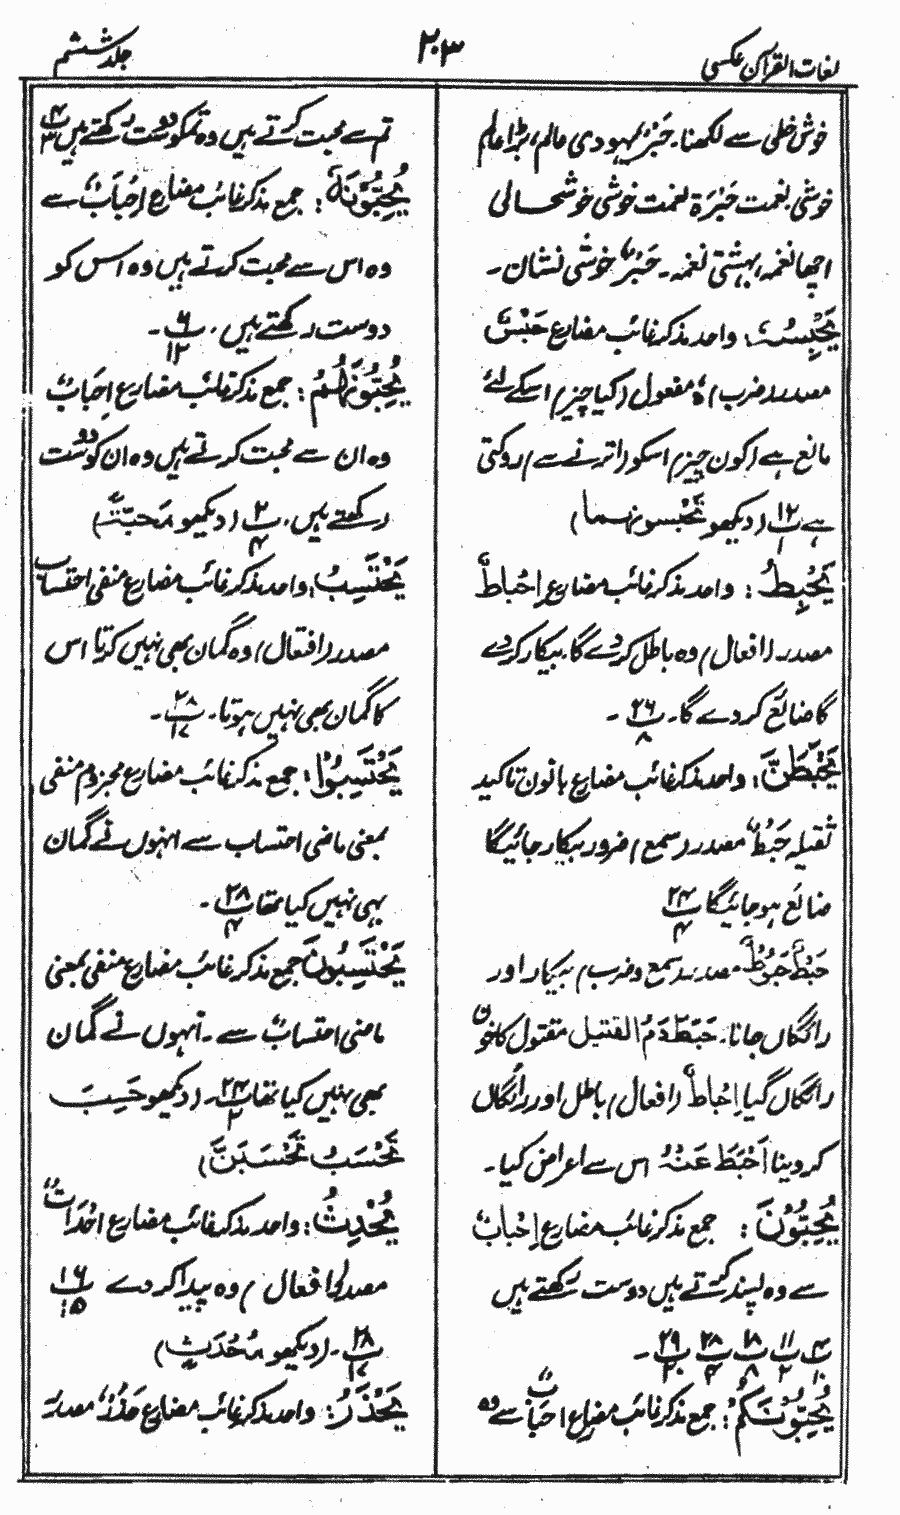 لغات القرآن عکسی
۲۰۳
جلد ششم
خوش خطی سے لکھنا۔ حَبْرٌ یہودی عالم، بڑا عالم
خوشی نعمت حَبْرَۃ نعمت خوشی خوشحالی
اچھا نغمہ، بہشتی نغمہ۔ حَبْرٌ خوشی نشان۔
یَحْبِسُہٗ: واحد مذکر غائب مضارع حَبْسٌ
مصدر (ضرب) ہٗ مفعول (کیا چیز) اسکے لئے
مانع ہے (کون چیز) اسکو (اترنے سے) روکتی
ہے ۱۲ پ ۱ (دیکھو تَحْبِسُونَہما)
یُحْبِطُ: واحد مذکر غائب مضارع اِحْبَاطٌ
مصدر (افعال) وہ باطل کر دے گا، بیکار کر دے
گا ضائع کر دے گا۔ ۲۶ پ ۸ ۔
یَحْبَطَنَّ: واحد مذکر غائب مضارع بانون تاکید
ثقیلہ حَبْطٌ مصدر (سمع) ضرور بیکار جائیگا
ضائع ہو جائیگا ۲۴ پ ۴
حَبْطٌ حُبُوْطٌ مصدر سمع و ضرب) بیکار اور
رائگاں جانا۔ حَبِطَ دَمُ القتیل مقتول کا خون
رائگاں گیا اِحْبَاطٌ (افعال) باطل اور رائگاں
کر دینا اَحْبَطَ عَنْہُ اس سے اعراض کیا۔
یُحِبُّوْنَ: جمع مذکر غائب مضارع اِحْبَابٌ
سے وہ پسند کرتے ہیں دوست رکھتے ہیں
۴ پ ۱۰ ۱۱ پ ۲ ۱۸ پ ۸ ۲۸ پ ۴ ۲۹ پ ۲۰ ۔
یُحِبُّوْنَکُمْ: جمع مذکر غائب مضارع احبابٌ سے وہ
تم سے محبت کرتے ہیں وہ تمکو دوست رکھتے ہیں ۴ پ ۳
یُحِبُّوْنَہٗ: جمع مذکر غائب مضارع اِحْبَابٌ سے
وہ اس سے محبت کرتے ہیں وہ اس کو
دوست رکھتے ہیں، ۶ پ ۱۲ ۔
یُحِبُّوْنَہُمْ: جمع مذکر غائب مضارع اِحْبَابٌ
وہ ان سے محبت کرتے ہیں وہ ان کو دوست
رکھتے ہیں، ۲ پ ۴ (دیکھو مَحَبَّۃً)
یَحْتَسِبُ: واحد مذکر غائب مضارع منفی احتساب
مصدر (افتعال) وہ گمان بھی نہیں کرتا اس
کا گمان بھی نہیں ہوتا۔ ۲۸ پ ۱۷ ۔
یَحْتَسِبُوْا: جمع مذکر غائب مضارع مجزوم منفی
بمعنی ماضی احتساب سے انہوں نے گمان
بھی نہیں کیا تھا ۲۸ پ ۴ ۔
یَحْتَسِبُوْنَ جمع مذکر غائب مضارع منفی بمعنی
ماضی احتسابٌ سے ۔ انہوں نے گمان
بھی نہیں کیا تھا ۲۴ پ ۲ ۔ (دیکھو حَسِبَ
تَحْسَبُ تَحْسَبَنَّ)
یُحْدِثُ: واحد مذکر غائب مضارع اِحْدَاثٌ
مصدر (افعال) وہ پیدا کر دے ۱۶ پ ۱۵
۲۸ پ ۱۷ ۔ (دیکھو مُحْدَثٍ)
یَحْذَرُ: واحد مذکر غائب مضارع حَذْرٌ مصدر